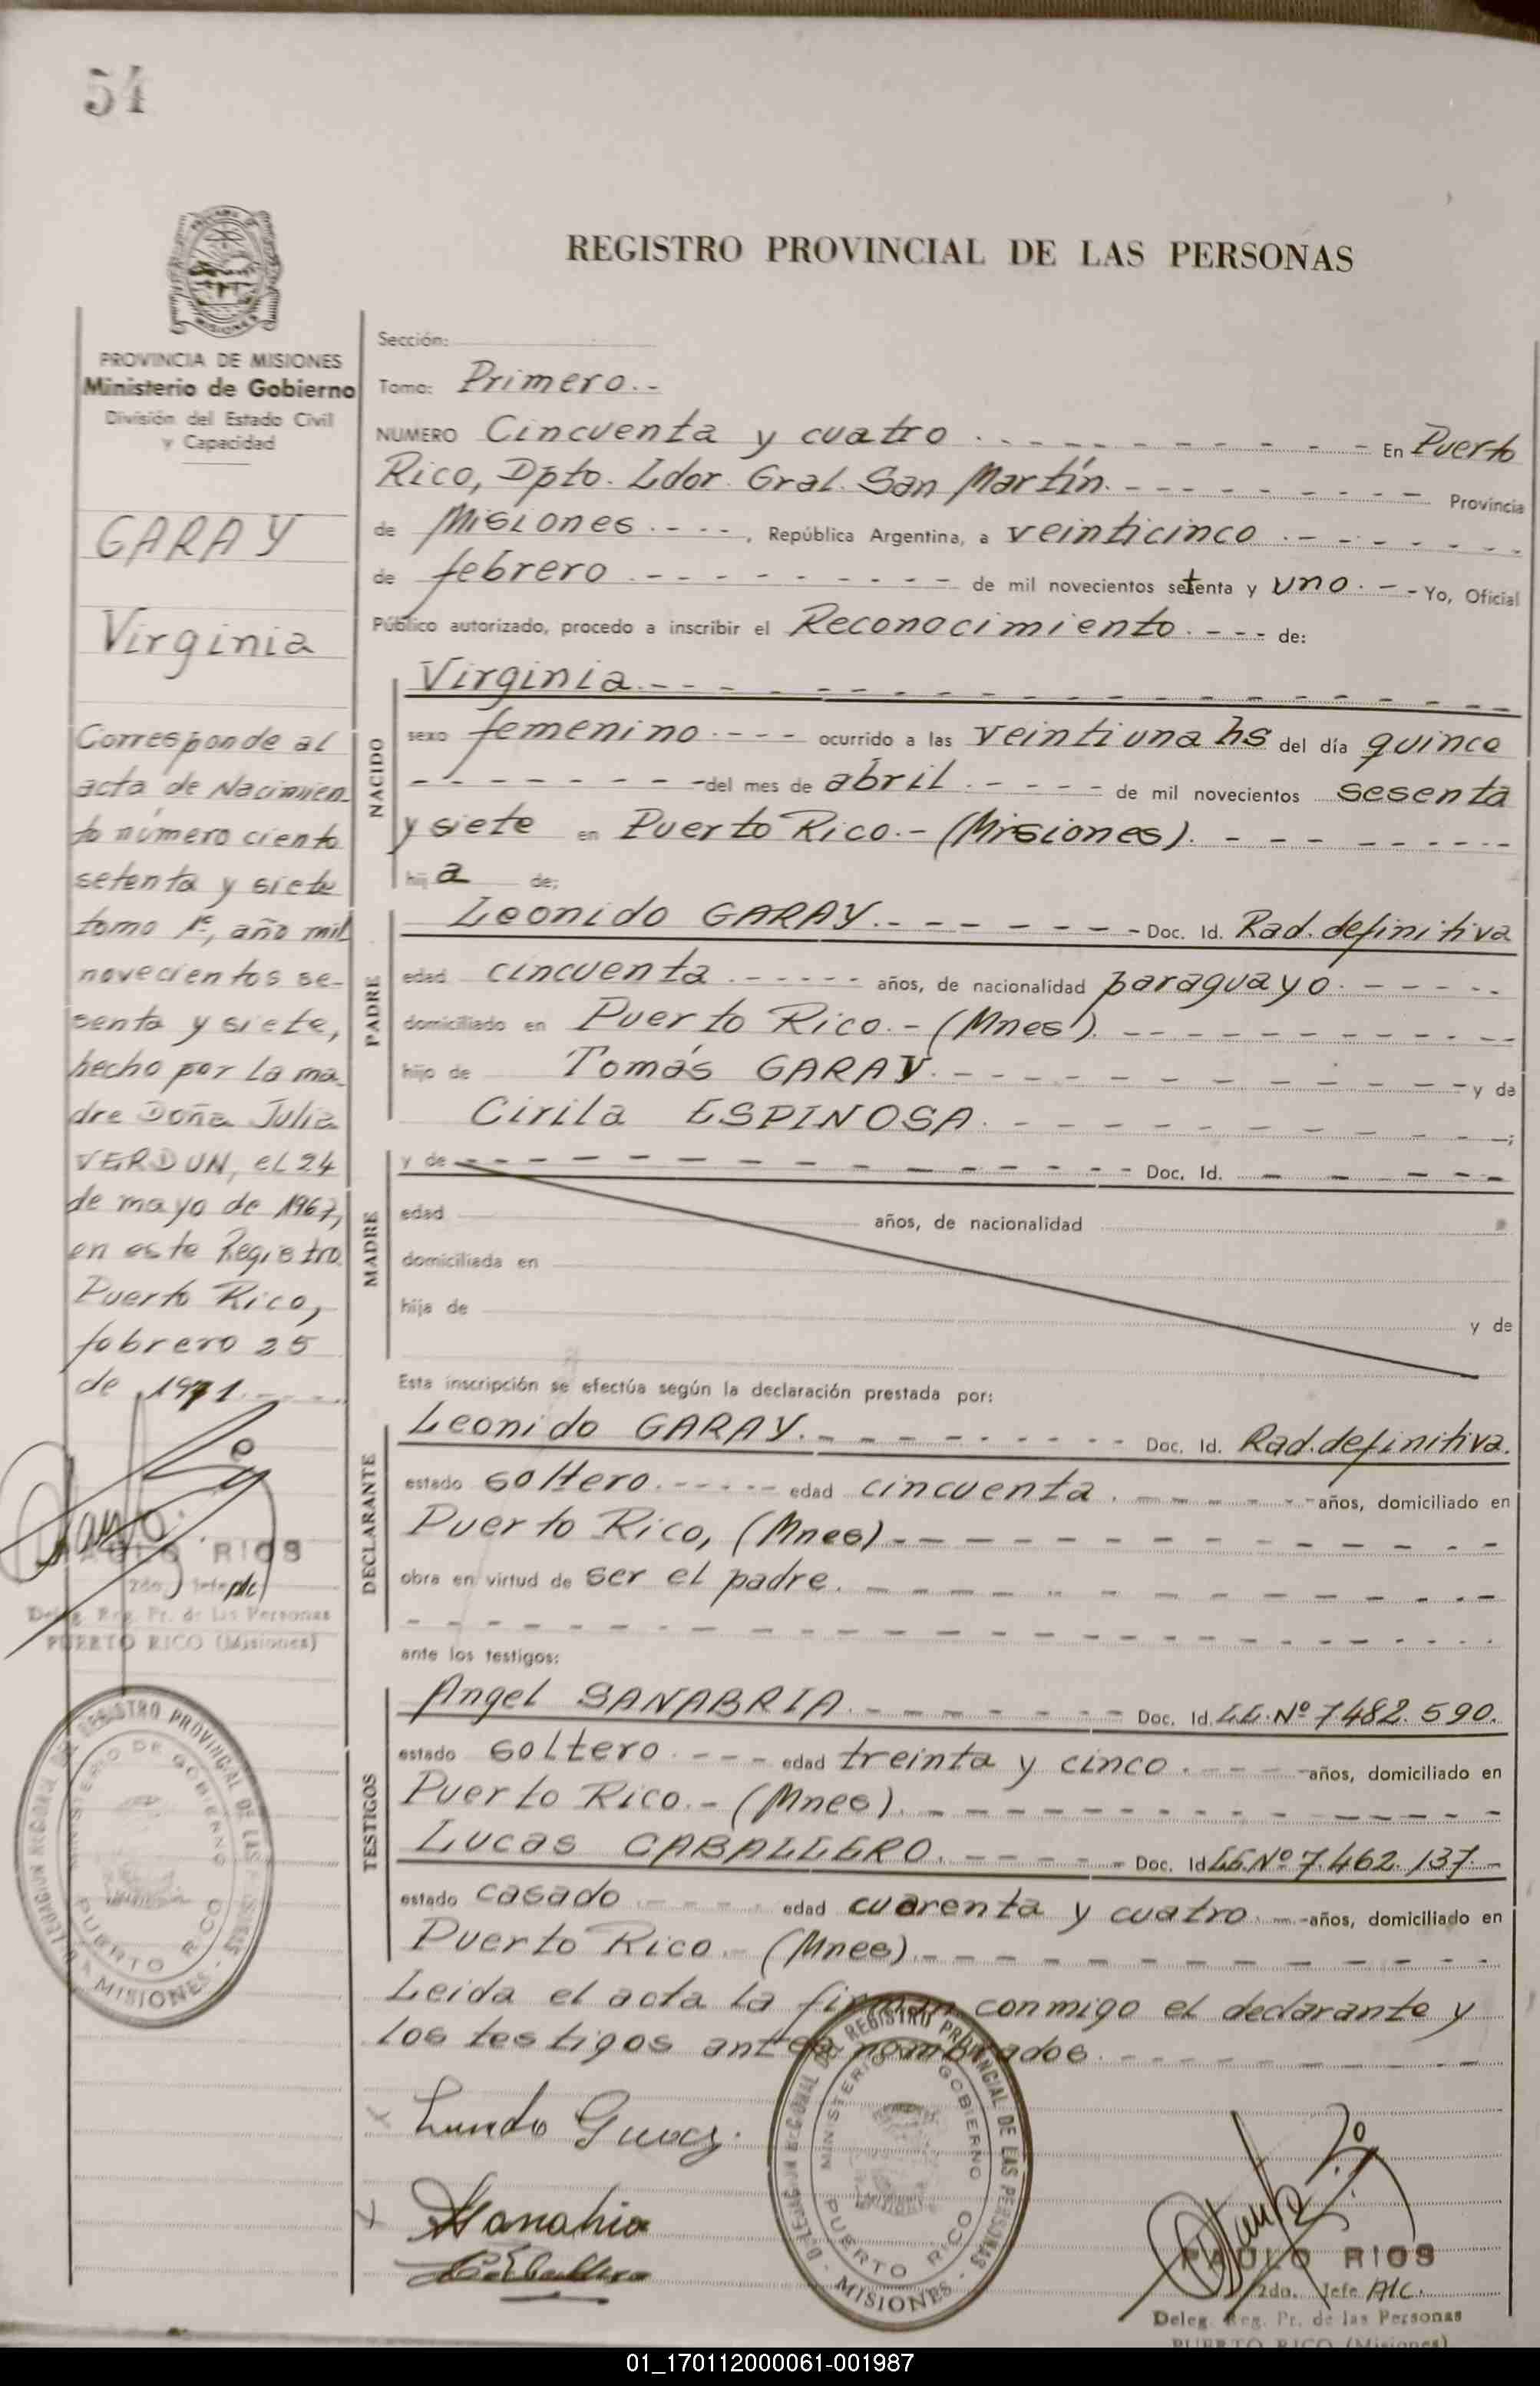 54
REGISTRO PROVINCIAL DE LAS PERSONAS
PROVINCIA DE MISIONES
Ministerio de Gobierno
División del Estado Civil
y Capacidad
GARAY
Virginia
Corresponde al
acta de Nacimien-
to número ciento
setenta y siete
tomo 1º, año mil
novecientos se-
senta y siete,
hecho por la ma-
dre Doña Julia
VERDUN, el 24
de mayo de 1967,
en este Registro
Puerto Rico,
febrero 25
de 1971.----
PAULO RIOS
2do. Jefe
Deleg. Reg. Pr. de las Personas
PUERTO RICO (Misiones)
DELEGACION REGIONAL DEL REGISTRO PROVINCIAL DE LAS PERSONAS
MINISTERIO DE GOBIERNO
PUERTO RICO
- MISIONES -
Sección:
Tomo: Primero.-
NUMERO Cincuenta y cuatro.--------- En Puerto
Rico, Dpto. Ldor. Gral. San Martín.-------- Provincia
de Misiones.----, República Argentina, a veinticinco.-------
de febrero.--------- de mil novecientos setenta y uno.--- Yo, Oficial
Público autorizado, procedo a inscribir el Reconocimiento.---- de:
NACIDO
Virginia.----------------
sexo femenino.---- ocurrido a las veintiuna hs del día quince
--------del mes de abril.----- de mil novecientos sesenta
y siete en Puerto Rico.-(Misiones).--------
hija de;
PADRE
Leonido GARAY.------- Doc. Id. Rad. definitiva
edad cincuenta.------ años, de nacionalidad paraguayo.-----
domiciliado en Puerto Rico.-(Mnes).----------
hijo de Tomás GARAY.------------ y de
Cirila ESPINOSA.------------;
MADRE
y de -------------- Doc. Id. ------
edad años, de nacionalidad
domiciliada en
hija de y de
Esta inscripción se efectúa según la declaración prestada por:
DECLARANTE
Leonido GARAY.--------- Doc. Id. Rad. definitiva.
estado soltero.----- edad cincuenta.------años, domiciliado en
Puerto Rico, (Mnes)------------
obra en virtud de ser el padre.------------
----------------------
ante los testigos:
TESTIGOS
Angel SANABRIA.------- Doc. Id. L.E. Nº 7482.590.
estado soltero.---- edad treinta y cinco.-----años, domiciliado en
Puerto Rico.-(Mnes).-------------
Lucas CABALLERO.------ Doc. Id L.E. Nº 7.462.137.-
estado casado---- edad cuarenta y cuatro.--años, domiciliado en
Puerto Rico.-(Mnes).------------
Leida el acta la firman conmigo el declarante y
los testigos antes nombrados.---------
DELEGACION REGIONAL DEL REGISTRO PROVINCIAL DE LAS PERSONAS
MINISTERIO DE GOBIERNO
PUERTO RICO
- MISIONES -
PAULO RIOS
2do. Jefe A/c.
Deleg. Reg. Pr. de las Personas
PUERTO RICO (Misiones)
01_170112000061-001987